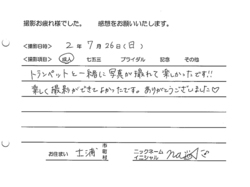 撮影お疲れ様でした。 感想をお願いいたします。
<撮影日時> 2 年 7 月 26 日 (日)
<撮影項目> 成人 七五三 ブライダル 記念 その他
トランペットと一緒に写真が撮れて楽しかったです!!
楽しく撮影ができてよかったです。ありがとうございました♡
お住まい 土浦 市 町 村 ニックネーム イニシャル